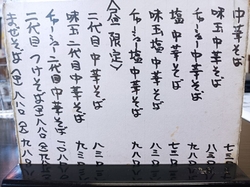 中華そば 七三〇
味玉中華そば 八三〇
チャーシュー中華そば 九八〇
塩中華そば 七三〇
味玉塩中華そば 八三〇
チャーシュー塩中華そば
〈昼限定〉
二代目中華そば 八三〇
味玉二代目中華そば 九三〇
チャーシュー二代目中華そば 一〇八〇
二代目つけそば
まぜそば